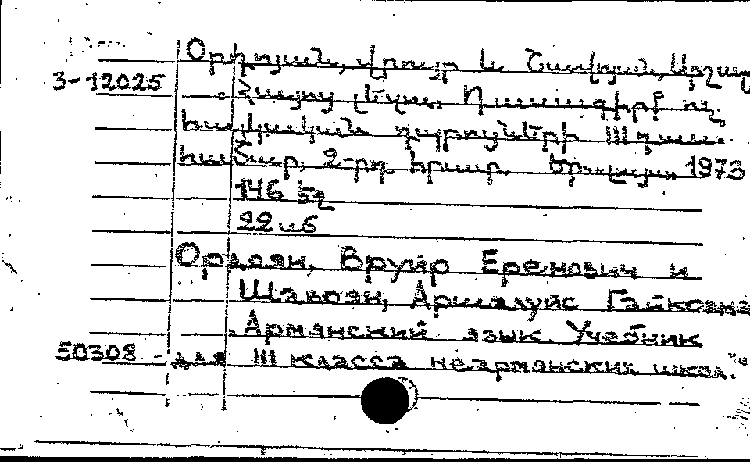 Օրդոյան, Վրույր և Շավոյան, Արշալ
3-12025
Հայոց լեզու. Դասագիրք ոչ
հայկական դպրոցների III դաս.
համար. 2-րդ հրատ. Եր., 1973
146 էջ
22 սմ
Ордоян, Вруйр Еремович и
Шавоян, Аршалуйс Гайковна
Армянский язык. Учебник
50308 - для III класса неармянских школ.